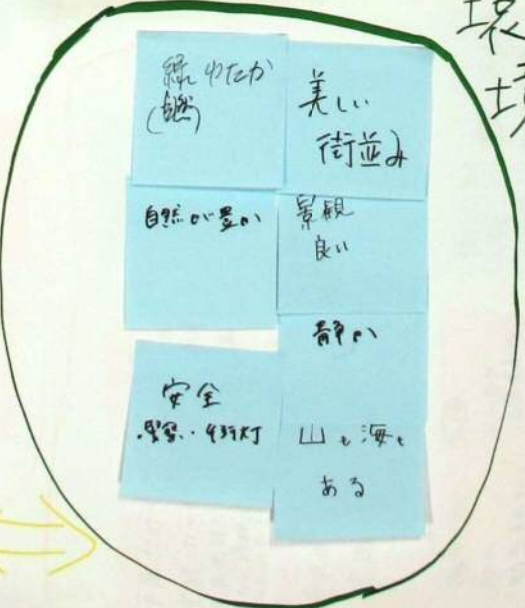 環境
緑ゆたか
(自然)
美しい
街並み
自然が豊か
景観
良い
静か
安全
・街灯
山も海も
ある